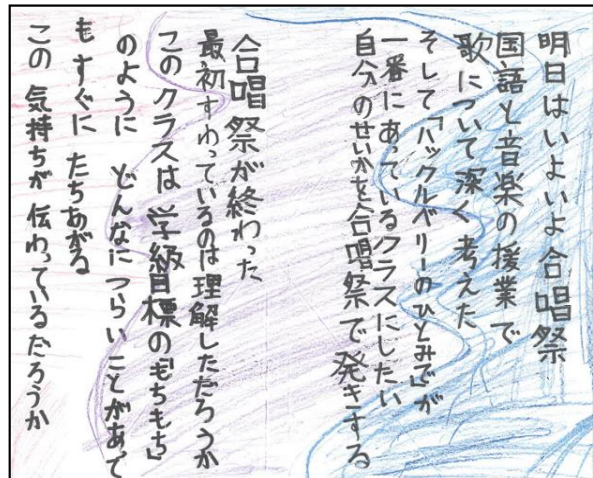 明日はいよいよ合唱祭
国語と音楽の授業で
歌について深く考えた
そして「ハックルベリーのひとみで」が
一番にあっているクラスにしたい
自分のせいかを合唱祭で発きする
合唱祭が終わった
最初すわっているのは理解しただろうか
このクラスは学級目標の「もちもち」
のように どんなにつらいことがあって
もすぐに たちあがる
この 気持ちが 伝わっているだろうか